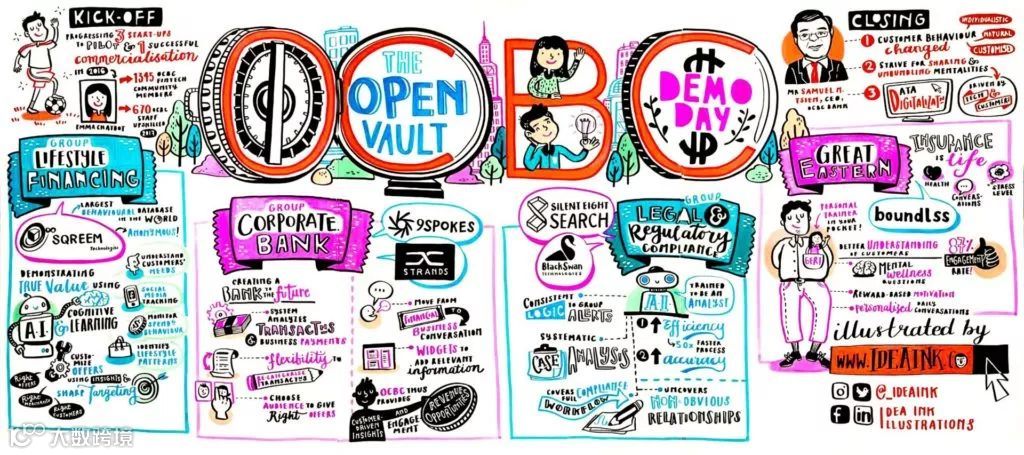 KICK-OFF
PROGRESSING 3 START-UPS
TO PILOT & 1 SUCCESSFUL
commercialisation
IN 2016
→ 1345 OCBC
FINTECH
COMMUNITY
MEMBERS
→ 670 OCBC
STAFF
UPSKILLED
2017
EMMA CHATBOT
OCBC
THE
OPEN
VAULT
DEMO
DAY
CLOSING
MR SAMUEL N.
TSIEN, CEO,
OCBC BANK
1 CUSTOMER BEHAVIOUR
changed
INDIVIDUALISTIC
NATURAL
CUSTOMISED
2 STRIVE FOR SHARING &
UNBUNDLING MENTALITIES
3 DATA
DIGITALIZATN
DRIVEN BY
TECH &
CUSTOMERS
GROUP
LIFESTYLE
FINANCING
LARGEST
BEHAVIOURAL DATABASE
IN THE WORLD
ANONYMOUS!
SQREEM
Technologies
DEMONSTRATING
TRUE Value USING
A.I.
& COGNITIVE
LEARNING
UNDERSTAND
CUSTOMERS'
NEEDS
SOCIAL
MEDIA
TRACKING
MONITOR
SPEND
BEHAVIOUR
IDENTIFY
LIFESTYLE
PATTERNS
CUSTOMISE
OFFERS
USING INSIGHTS &
SHARP Targeting
Right
OFFERS
Right
MERCHANTS
Right
CUSTOMERS
GROUP
CORPORATE
BANK
9SPOKES
STRANDS
CREATING A
BANK TO future
SYSTEM
ANALYZES
TRANSACTNS
& BUSINESS PAYMENTS
flexibility TO
RE-CATEGORISE
TRANSACTNS
CHOOSE
AUDIENCE TO GIVE
Right OFFERS
MOVE FROM
FINANCIAL TO
BUSINESS
CONVERSATION
WIDGETS TO
ADD RELEVANT
information
OCBC THUS
PROVIDES
CUSTOMER-
DRIVEN INSIGHTS
AND
ENGAGEMENT
REVENUE
OPPORTUNITIES
SILENT EIGHT
SEARCH
BLACKSWAN
TECHNOLOGIES
GROUP
LEGAL &
Regulatory
COMPLIANCE
CONSISTENT
LOGIC TO GROUP
ALERTS
SYSTEMATIC
CASE ANALYSIS
COVERS
FULL COMPLIANCE
WORKFLOW
A.I.
TRAINED TO
BE AN
ANALYST!
1 ↑ Efficiency
50x FASTER
PROCESS
2 ↑ accuracy
UNCOVERS
NON-OBVIOUS
RELATIONSHIPS
GREAT
EASTERN
INSURANCE
IS life
HEALTH
CONVERSATIONS
STRESS
LEVEL
boundlss
PERSONAL
TRAINER
IN YOUR
POCKET!
GERI
BETTER UNDERSTANDING
OF CUSTOMERS
87%
ENGAGEMENT
RATE!
MENTAL
wellness
QUESTIONS
REWARD-BASED MOTIVATION
personalised DAILY
CONVERSATIONS
illustrated by
WWW.IDEAINK.CO
@_IDEAINK
IDEA INK
ILLUSTRATIONS
大数跨境